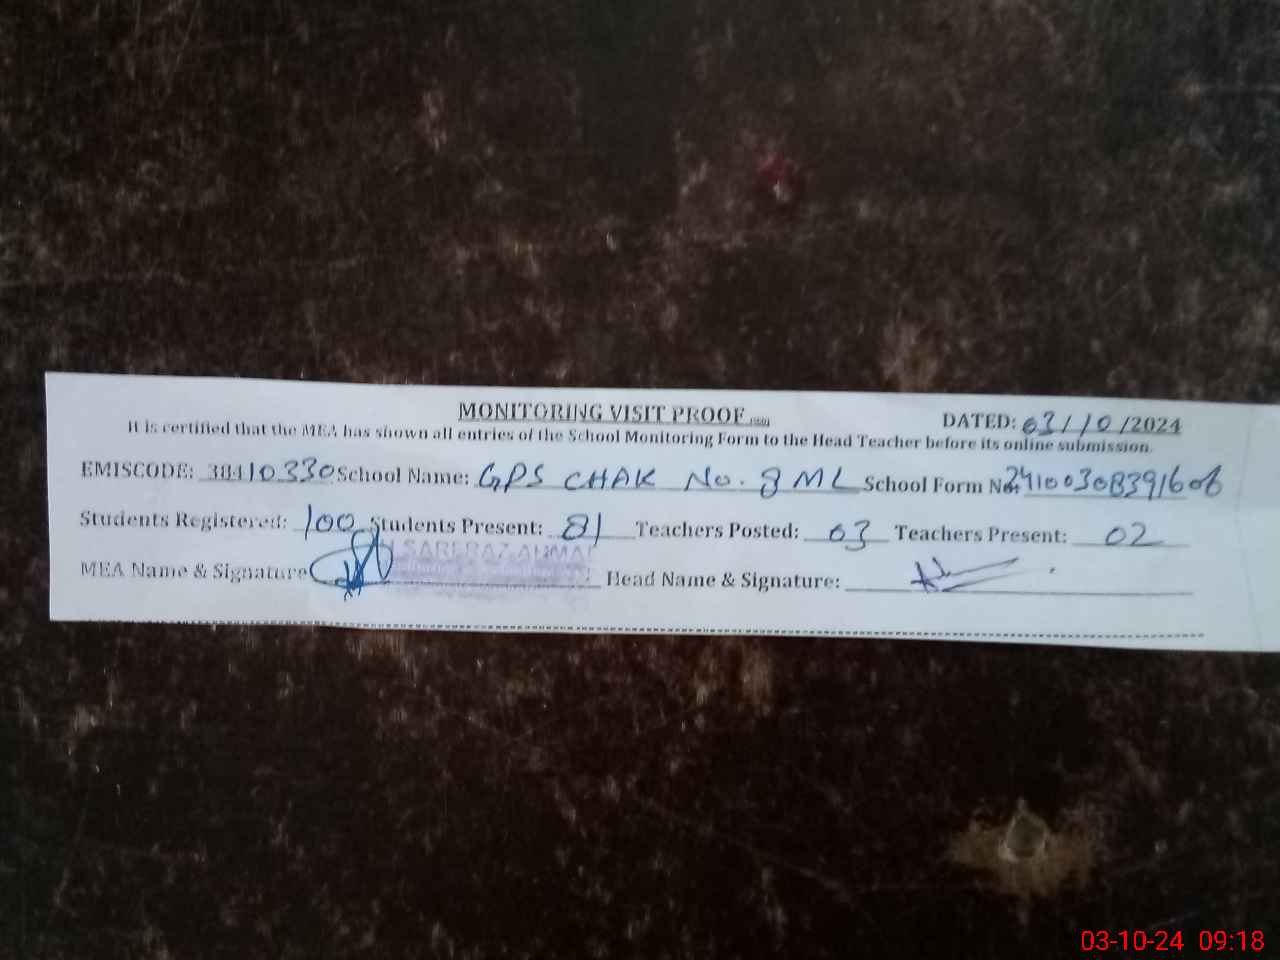 MONITORING VISIT PROOF
DATED: 03/10/2024
It is certified that the MEA has shown all entries of the School Monitoring Form to the Head Teacher before its online submission.
EMISCODE: 38410330 School Name: GPS CHAK No. 8 ML School Form No: 24100308391606
Students Registered: 100 Students Present: 81 Teachers Posted: 03 Teachers Present: 02
MEA Name & Signature Head Name & Signature:
03-10-24 09:18